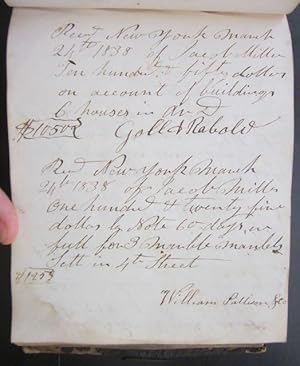 Recd New York March
24th 1838 of Jacob Miller
Ten hundred & fifty dollars
on account of buildings
6 houses in Ave D
$1050
Recd New York March
24th 1838 of Jacob Miller
One hundred & twenty five
dollars by Note 60 days in
full for 3 Marble Mantels
Sett in 4th Street
$125
William & Co